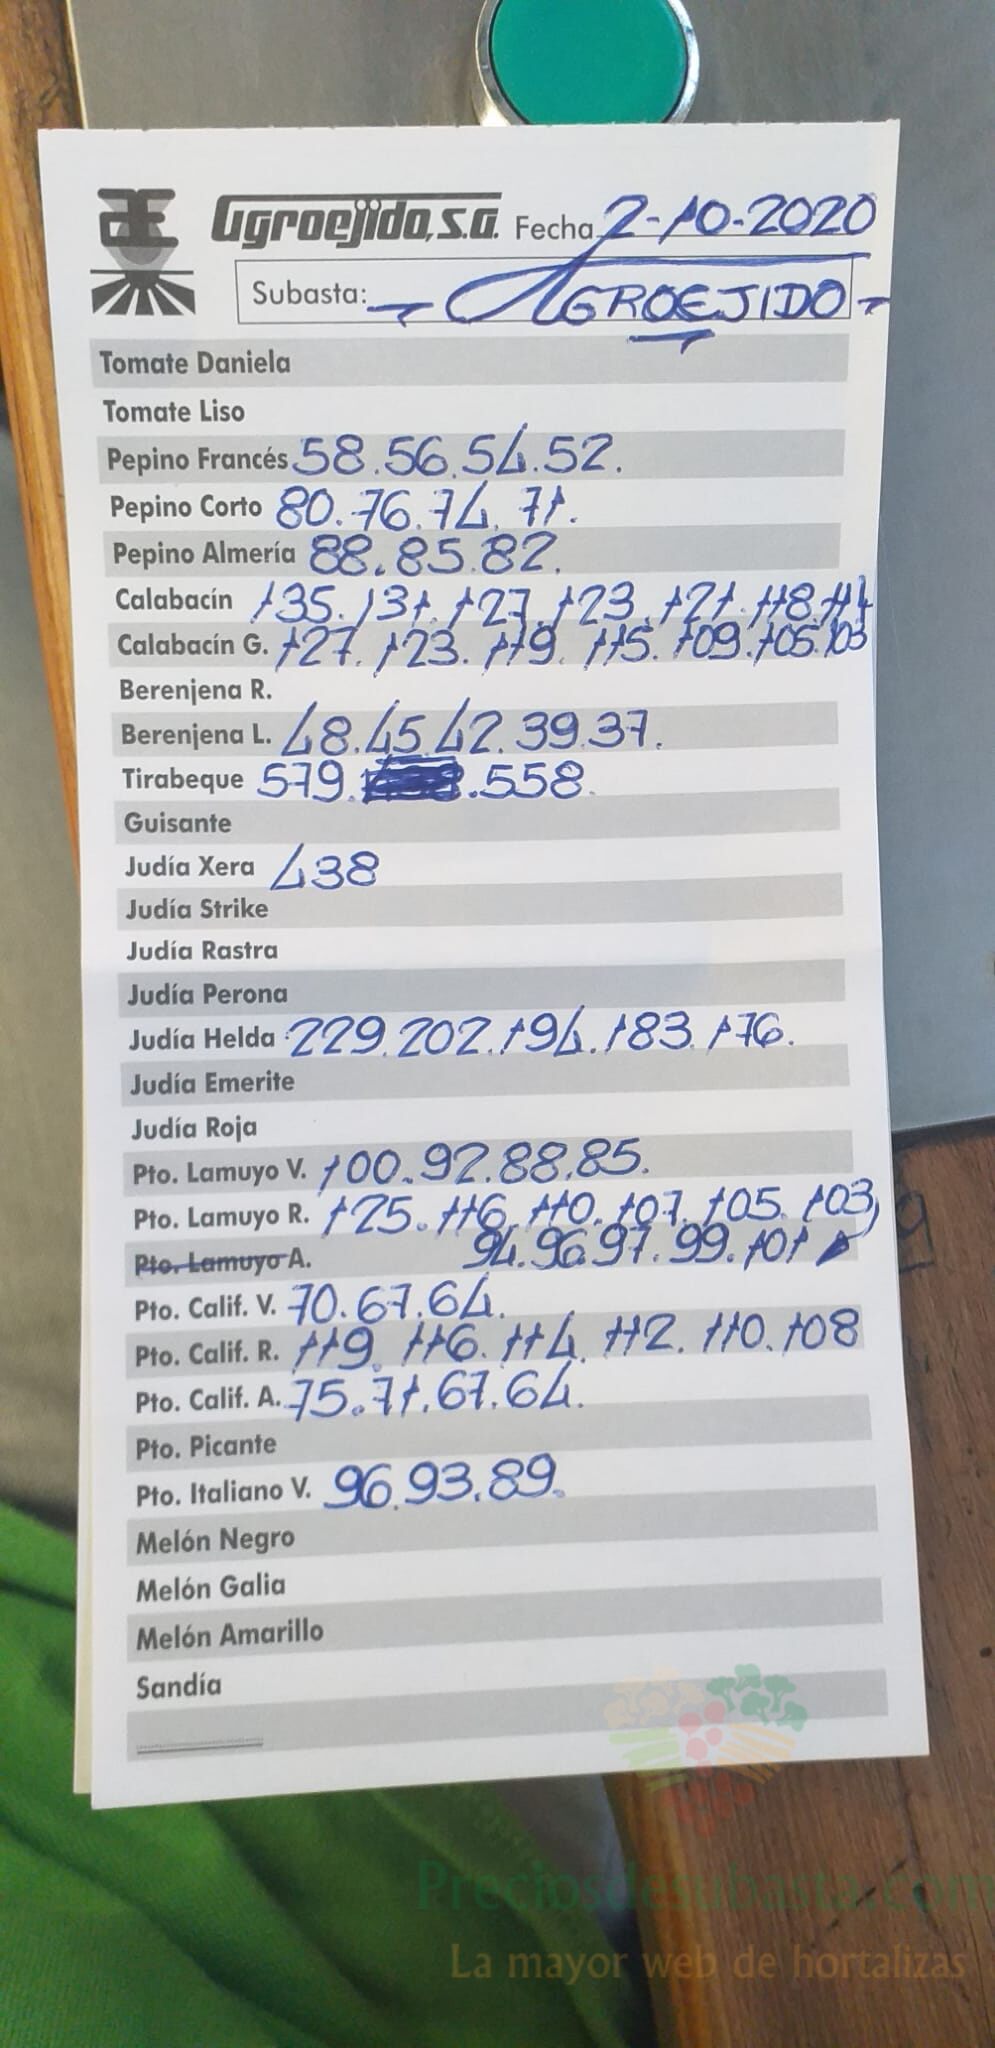 Agroejido, S.A. Fecha 2-10-2020
Subasta: - AGROEJIDO -
Tomate Daniela
Tomate Liso
Pepino Francés 58.56.54.52.
Pepino Corto 80.76.74.71.
Pepino Almería 88.85.82.
Calabacín 135.131.127.123.121.118.114
Calabacín G. 127.123.119.115.109.105.103
Berenjena R.
Berenjena L. 48.45.42.39.37.
Tirabeque 579. .558.
Guisante
Judía Xera 438
Judía Strike
Judía Rastra
Judía Perona
Judía Helda 229.202.194.183.176.
Judía Emerite
Judía Roja
Pto. Lamuyo V. 100.92.88.85.
Pto. Lamuyo R. 125.116.110.107.105.103
Pto. Lamuyo A. 94.96.97.99.101
Pto. Calif. V. 70.67.64.
Pto. Calif. R. 119.116.114.112.110.108
Pto. Calif. A. 75.71.67.64.
Pto. Picante
Pto. Italiano V. 96.93.89.
Melón Negro
Melón Galia
Melón Amarillo
Sandía
Preciosdesubasta.com
La mayor web de hortalizas